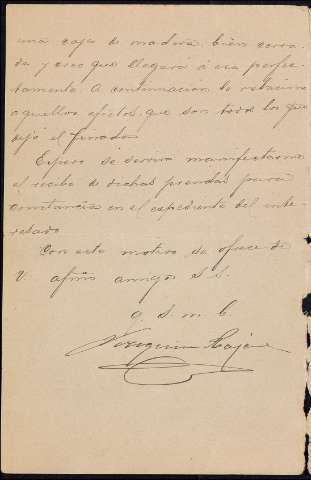 una caja de madera bien cerra-
da y creo que llegará á esa perfec-
tamente. A continuación le relaciono
aquellos efectos que son todo los que
dejó el finado.
Espero se servirá manifestarme
el recibo de dichas prendas para
constancia en el expediente del inte-
resado.
Con este motivo se ofrece de
V. afmo amigo S. S.
q. s. m. b.